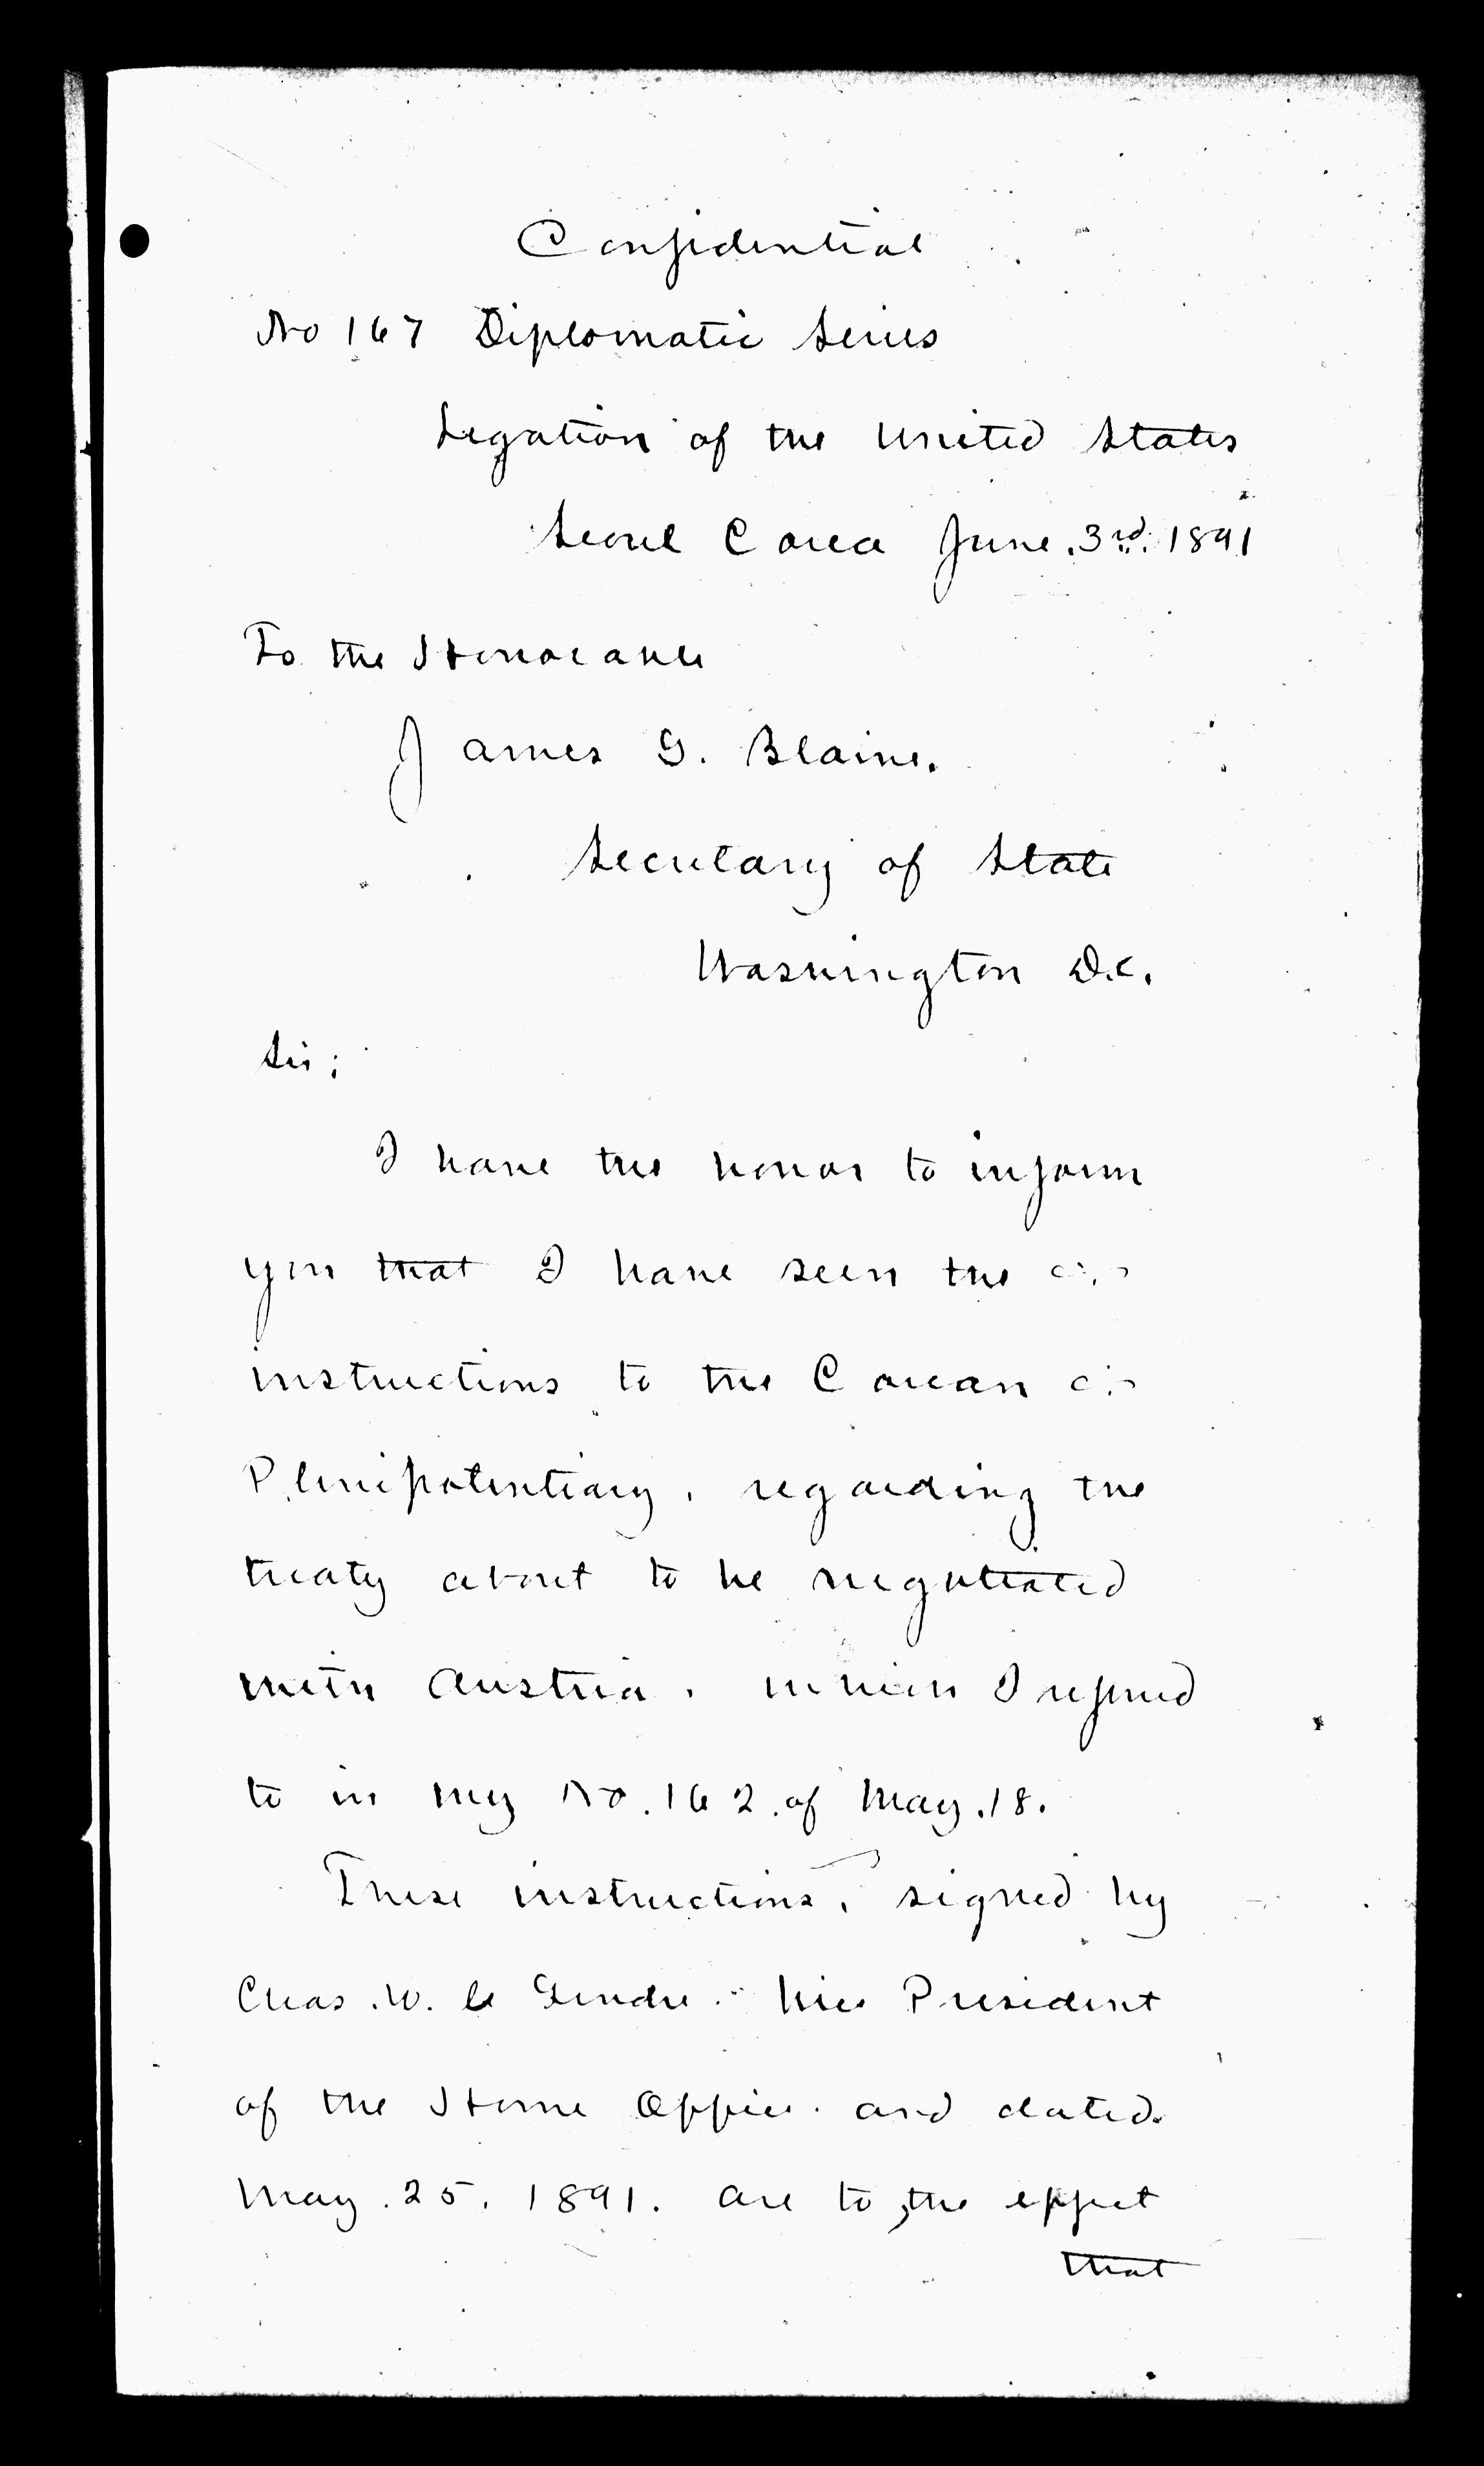 Confidential
No 167 Diplomatic Series
Legation of the United States
Seoul Corea June. 3rd. 1891
To the Honorable
James G. Blaine.
Secretary of State
Washington D.C.
Sir;
I have the honor to inform
you that I have seen the
instructions to the Corean
Plenipotentiary, regarding the
treaty about to be negotiated
with Austria, which I referred
to in my No. 162. of May. 18.
These instructions, signed by
Chas. W. le Gendre. Vice President
of the Home Office. and dated.
May. 25. 1891. are to the effect
that